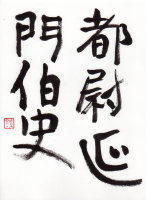 都尉延
門伯史